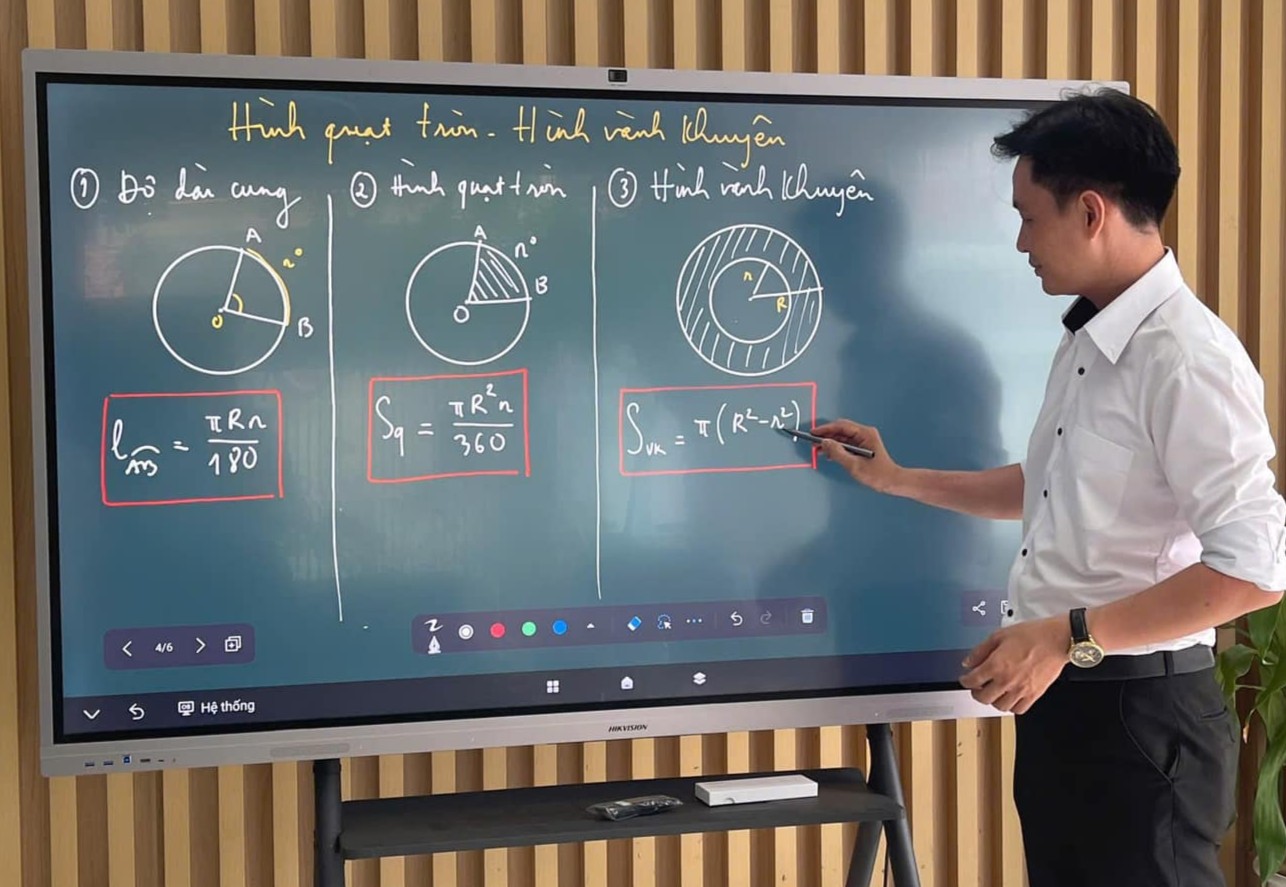 Hình quạt tròn - Hình vành khuyên
① Độ dài cung
A
n°
O
B
l_AB = πRn/180
② Hình quạt tròn
A
n°
B
O
S_q = πR²n/360
③ Hình vành khuyên
r
R
S_VK = π(R²-r²)
4/6
Hệ thống
HIKVISION